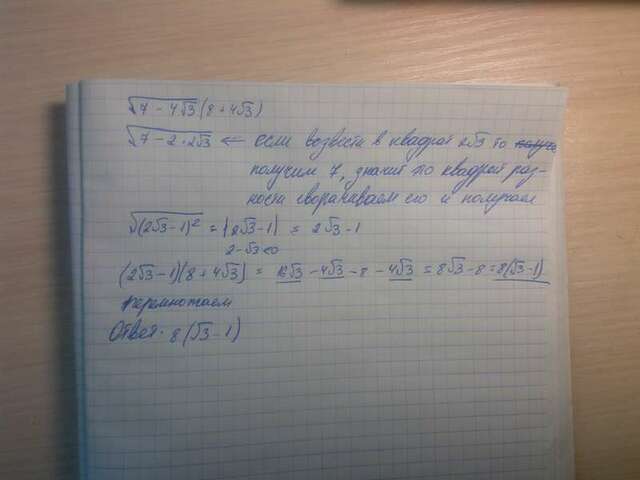 √7 - 4√3 (8 + 4√3)
√7 - 2 · 2√3 ← если возвести в квадрат 2√3 то
получим 7, значит это квадрат раз-
ности сворачиваем его и получаем
√(2√3-1)² = |2√3-1| = 2√3-1
2-√3<0
(2√3-1)(8+4√3) = 16√3 - 4√3 - 8 - 4√3 = 8√3-8 = 8(√3-1)
перемножаем
Ответ. 8(√3-1)